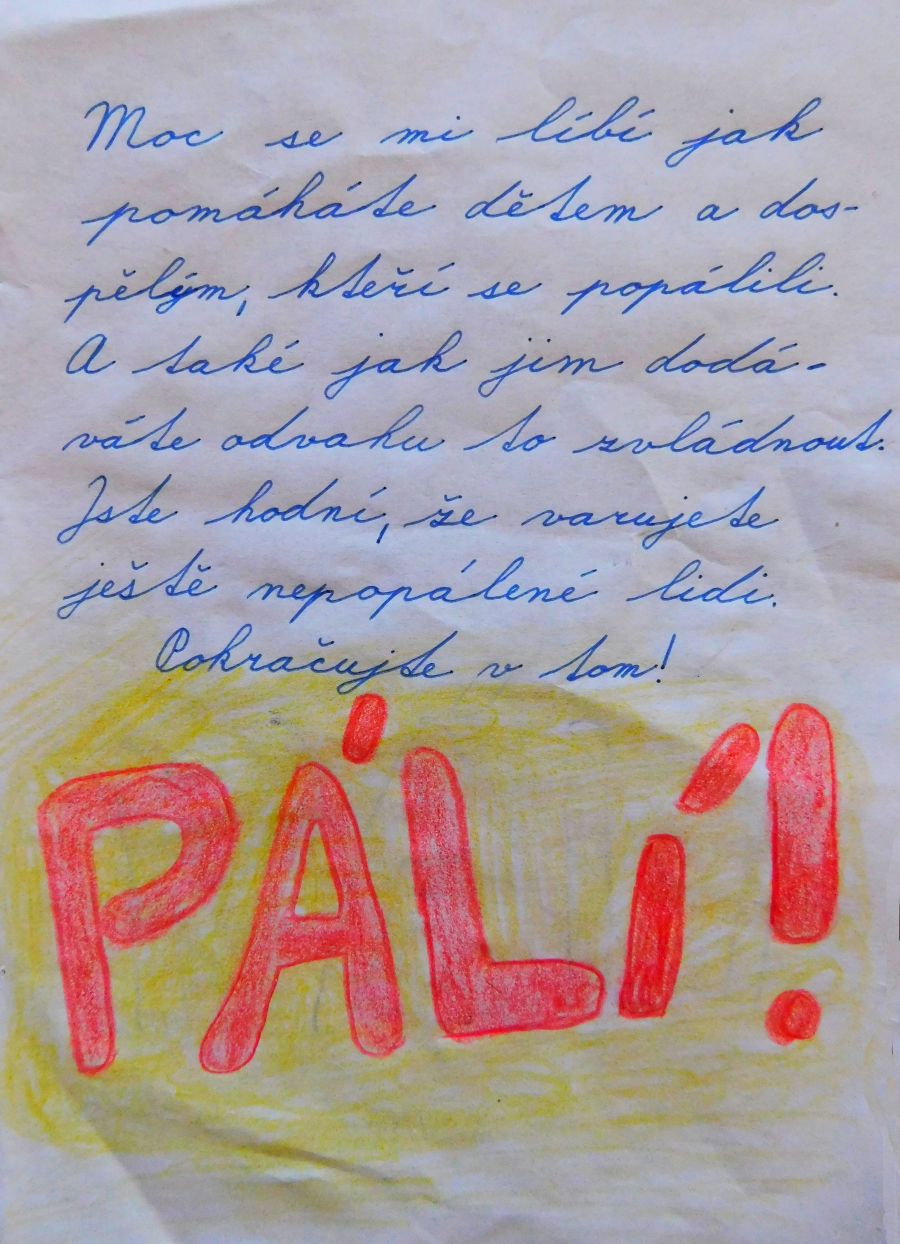 Moc se mi líbí jak
pomáháte dětem a dos-
pělým, kteří se popálili.
A také jak jim dodá-
váte odvahu to zvládnout.
Jste hodní, že varujete
ještě nepopálené lidi.
Pokračujte v tom!
PÁLÍ!